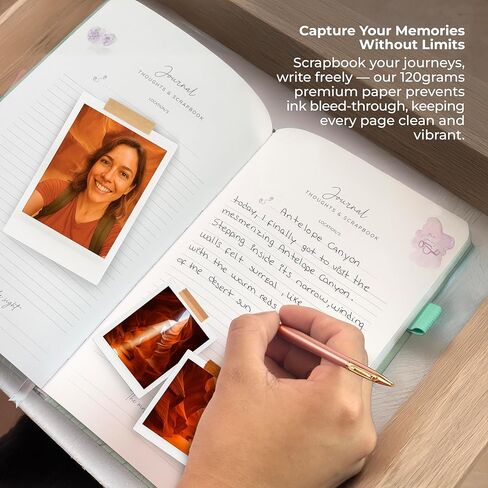 Capture Your Memories
Without Limits
Scrapbook your journeys,
write freely — our 120grams
premium paper prevents
ink bleed-through, keeping
every page clean and
vibrant.
Journal
THOUGHTS & SCRAPBOOK
LOCATION/S
Journal
THOUGHTS & SCRAPBOOK
LOCATION/S
Antelope Canyon
today, I finally got to visit the
mesmerizing Antelope Canyon.
Stepping inside its narrow, winding
walls felt surreal, like
with the warm reds
of the desert sun